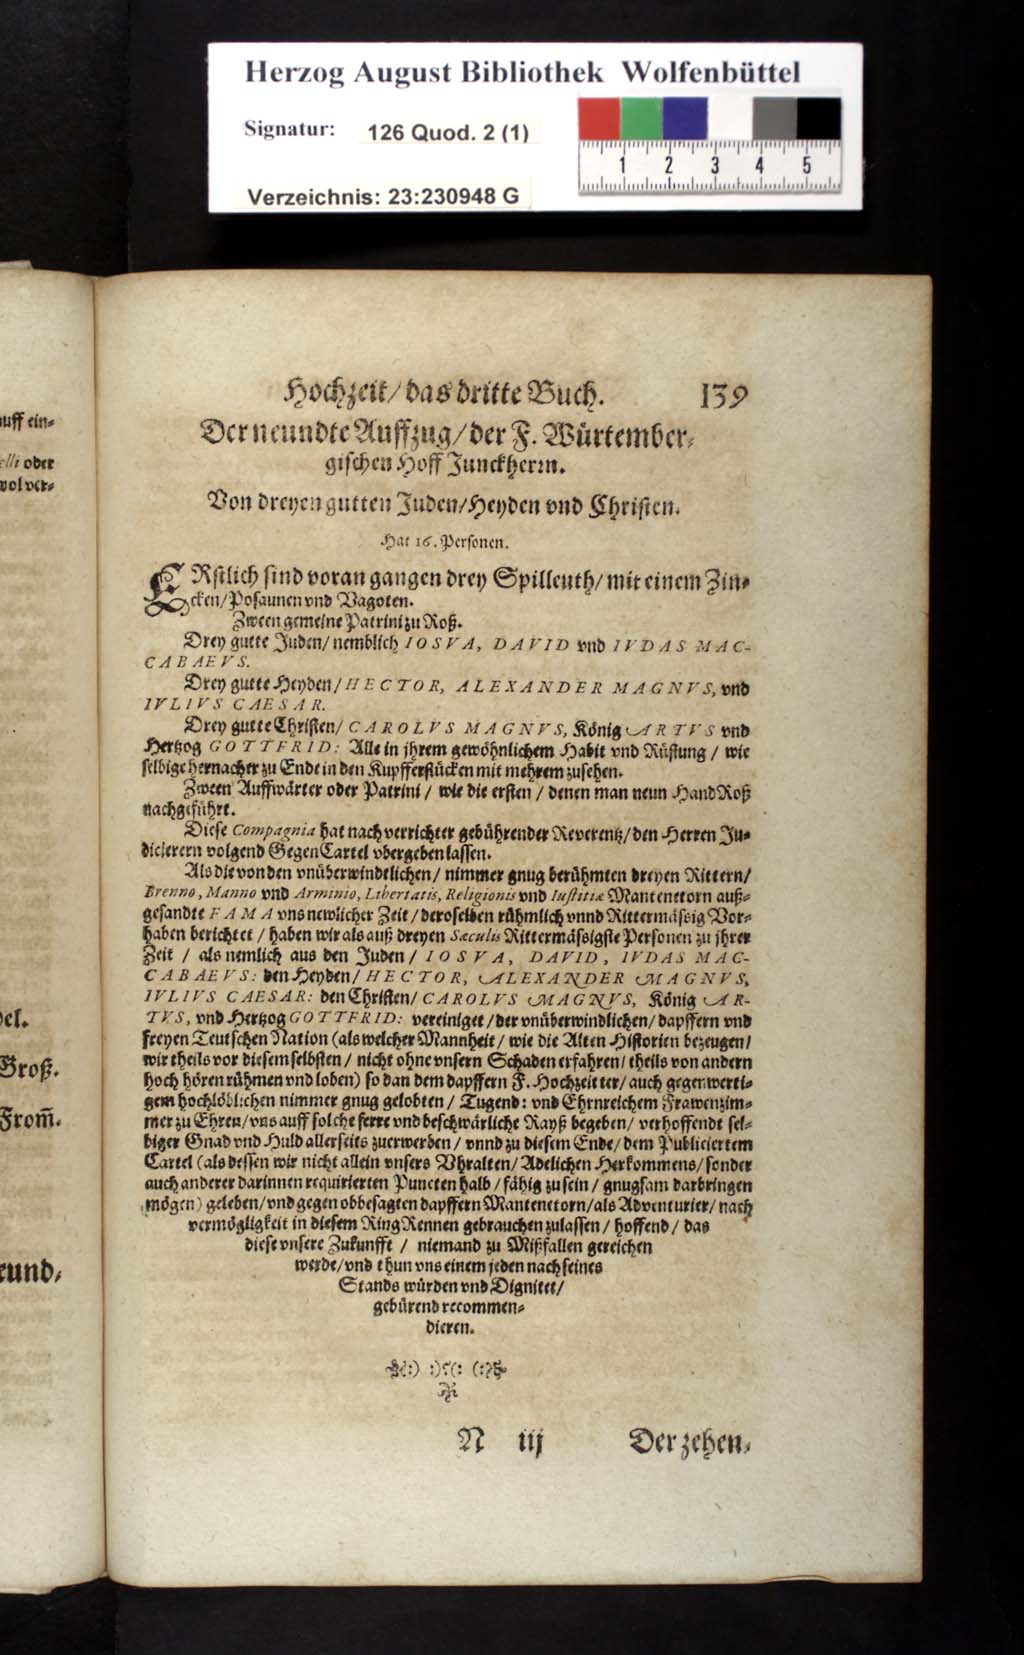 Herzog August Bibliothek Wolfenbüttel
Signatur: 126 Quod. 2 (1)
1 2 3 4 5
Verzeichnis: 23:230948 G
uff ein⸗
elli oder
wol ver⸗
del.
Groß.
From̃.
eund⸗
Hochzeit/ das dritte Buch. 139
Der neundte Auffzug/ der F. Würtember⸗
gischen Hoff Junckherꝛn.
Von dreyen gutten Juden/ Heyden vnd Christen.
Hat 16. Personen.
ERstlich sind voran gangen drey Spilleuth/ mit einem Zin⸗
cken/ Posaunen vnd Vagoten.
Zween gemeine Patrini zu Roß.
Drey gutte Juden/ nemblich IOSVA, DAVID vnd IVDAS MAC-
CABAEVS.
Drey gutte Heyden/ HECTOR, ALEXANDER MAGNVS, vnd
IVLIVS CAESAR.
Drey gutte Christen/ CAROLVS MAGNVS, König ARTVS vnd
Hertzog GOTTFRID: Alle in jhrem gewöhnlichem Habit vnd Rüstung / wie
selbige hernacher zu Ende in den Kupfferstücken mit mehrem zusehen.
Zween Auffwärter oder Patrini / wie die ersten / denen man neun HandRoß
nachgeführt.
Diese Compagnia hat nach verrichter gebührender Reverentz/ den Herren Ju⸗
dicierern volgend GegenCartel vbergeben lassen.
Als die von den vnüberwindtlichen / nimmer gnug berühmten dreyen Rittern/
Brenno, Manno vnd Arminio, Libertatis, Religionis vnd Iustitiæ Mantenetorn auß⸗
gesandte FAMA vns newlicher Zeit / deroselben rühmlich vnnd Rittermässig Vor⸗
haben berichtet / haben wir als auß dreyen Sæculis Rittermässigste Personen zu jhrer
Zeit / als nemlich aus den Juden / IOSVA, DAVID, IVDAS MAC-
CABAEVS: den Heyden/ HECTOR, ALEXANDER MAGNVS,
IVLIVS CAESAR: den Christen/ CAROLVS MAGNVS, König AR-
TVS, vnd Hertzog GOTTFRID: vereiniget / der vnüberwindlichen/ dapffern vnd
freyen Teutschen Nation (als welcher Mannheit / wie die Alten Historien bezeugen/
wir theils vor diesem selbsten / nicht ohne vnsern Schaden erfahren / theils von andern
hoch hören rühmen vnd loben) so dan dem dapffern F. Hochzeitter/ auch gegenwerti⸗
gem hochlöblichen nimmer gnug gelobten / Tugend: vnd Ehrnreichem Frawenzim⸗
mer zu Ehren/ vns auff solche ferre vnd beschwärliche Rayß begeben/ verhoffendt sel⸗
biger Gnad vnd Huld allerseits zuerwerben / vnnd zu diesem Ende/ dem Publiciertem
Cartel (als dessen wir nicht allein vnsers Vhralten/ Adelichen Herkommens/ sonder
auch anderer darinnen requirierten Puncten halb / fähig zu sein / gnugsam darbringen
mögen) geleben/ vnd gegen obbesagten dapffern Mantenetorn/ als Adventurier/ nach
vermögligkeit in diesem RingRennen gebrauchen zulassen / hoffend / das
diese vnsere Zukunfft / niemand zu Mißfallen gereichen
werde/ vnd thun vns einem jeden nach seines
Stands würden vnd Dignitet/
gebürend recommen⸗
dieren.
N iij Der zehen⸗